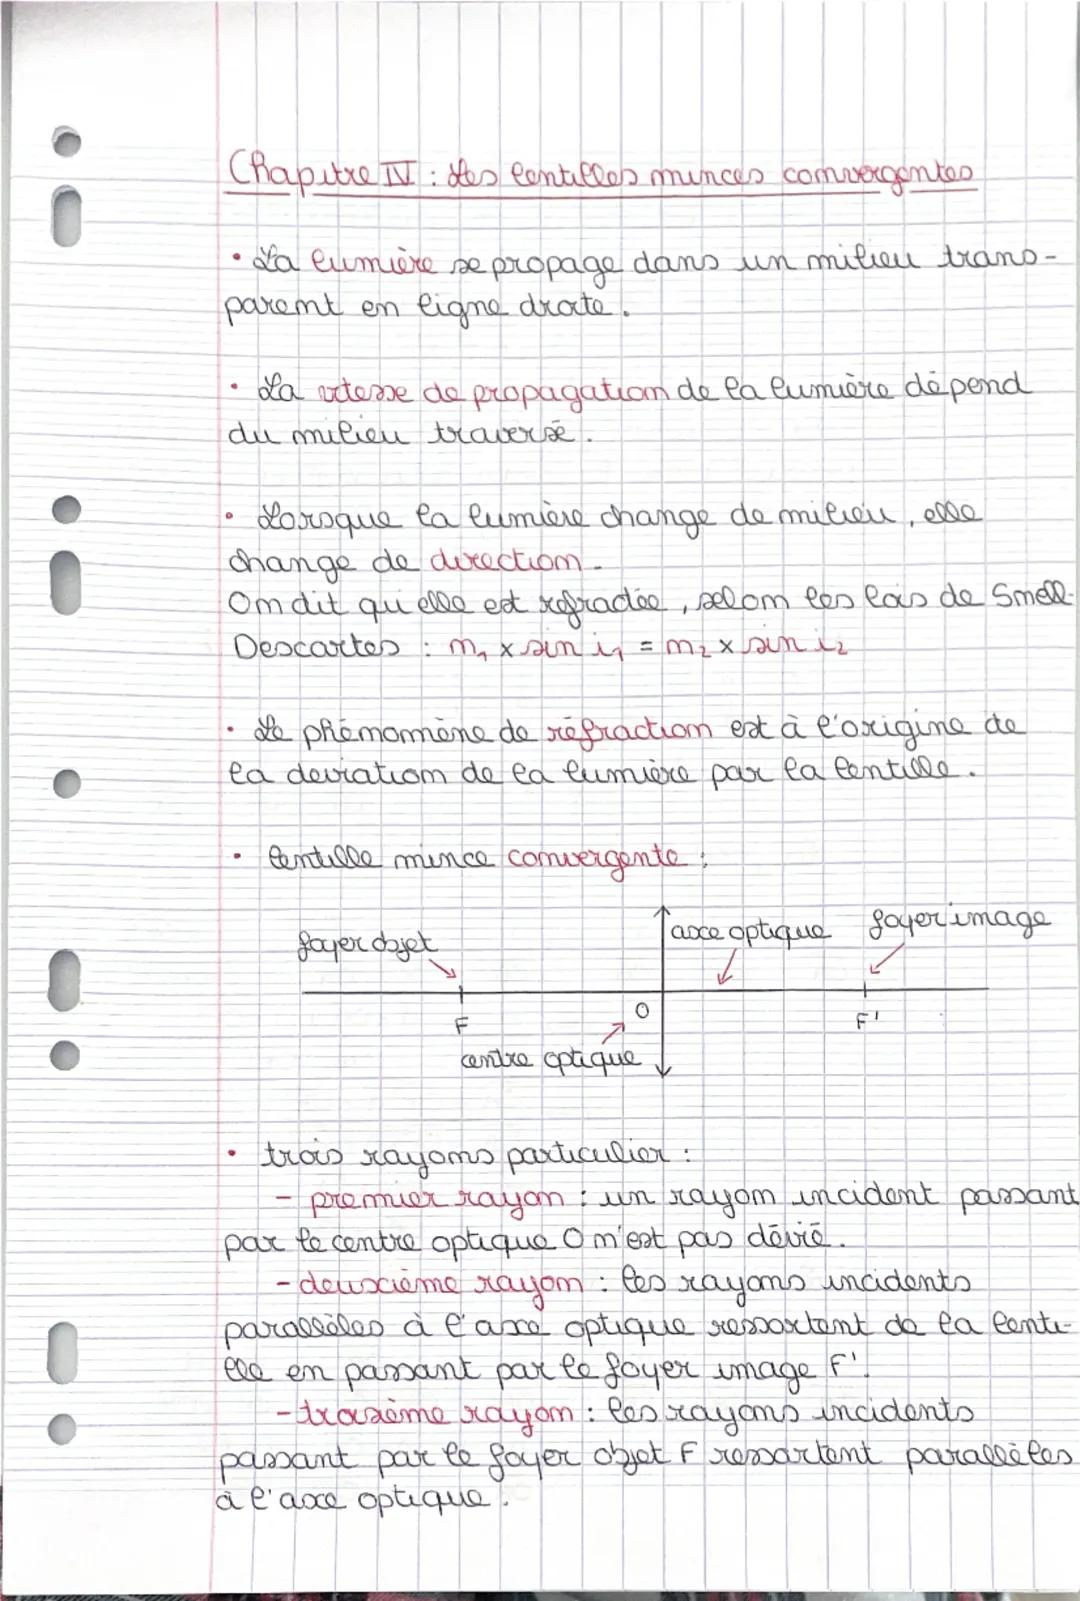 Chapitre IV : Les lentilles minces convergentes
• La lumière se propage dans un milieu trans-
parent en ligne droite.
• La vitesse de propagation de la lumière dépend
du milieu traversé.
• Lorsque la lumière change de milieu, elle
change de direction.
On dit qu'elle est refractée, selon les lois de Snell-
Descartes : n₁ x sin i₁ = n₂ x sin i₂
• Le phénomène de réfraction est à l'origine de
la deviation de la lumière par la lentille.
• lentille mince convergente :
foyer objet
axe optique
foyer image
F
O
F'
centre optique
• trois rayons particulier :
- premier rayon : un rayon incident passant
par le centre optique O n'est pas dévié.
- deuxième rayon : les rayons incidents
parallèles à l'axe optique ressortent de la lenti-
lle en passant par le foyer image F'.
- troisième rayon : les rayons incidents
passant par le foyer objet F ressortent parallèles
à l'axe optique.